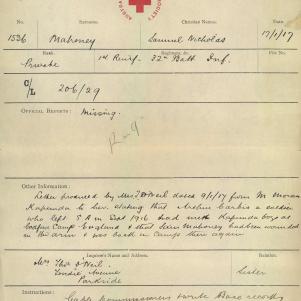 SOCIETY
No. Surname. Christian Names. Date
1536 Mahoney Samuel Nicholas 17/1/17
Rank. Regiment, &c. File No.
Private 1st Reinf. 32nd Batt Inf.
C/L 206/29
OFFICIAL REPORTS: Missing.
Other Information:
Letter produced by Mrs T O'Neil dated 9/1/17 from Mr
Kapunda to her stating that Arthur a soldier
who left S A in 1916 had met Kapunda boys at
Camp England & that Sam Mahoney had been wounded
in the arm & was back in Camp then again
Inquirer's Name and Address. Relation.
Mrs Thos O'Neil Sister
Avenue
Parkside
Instructions: